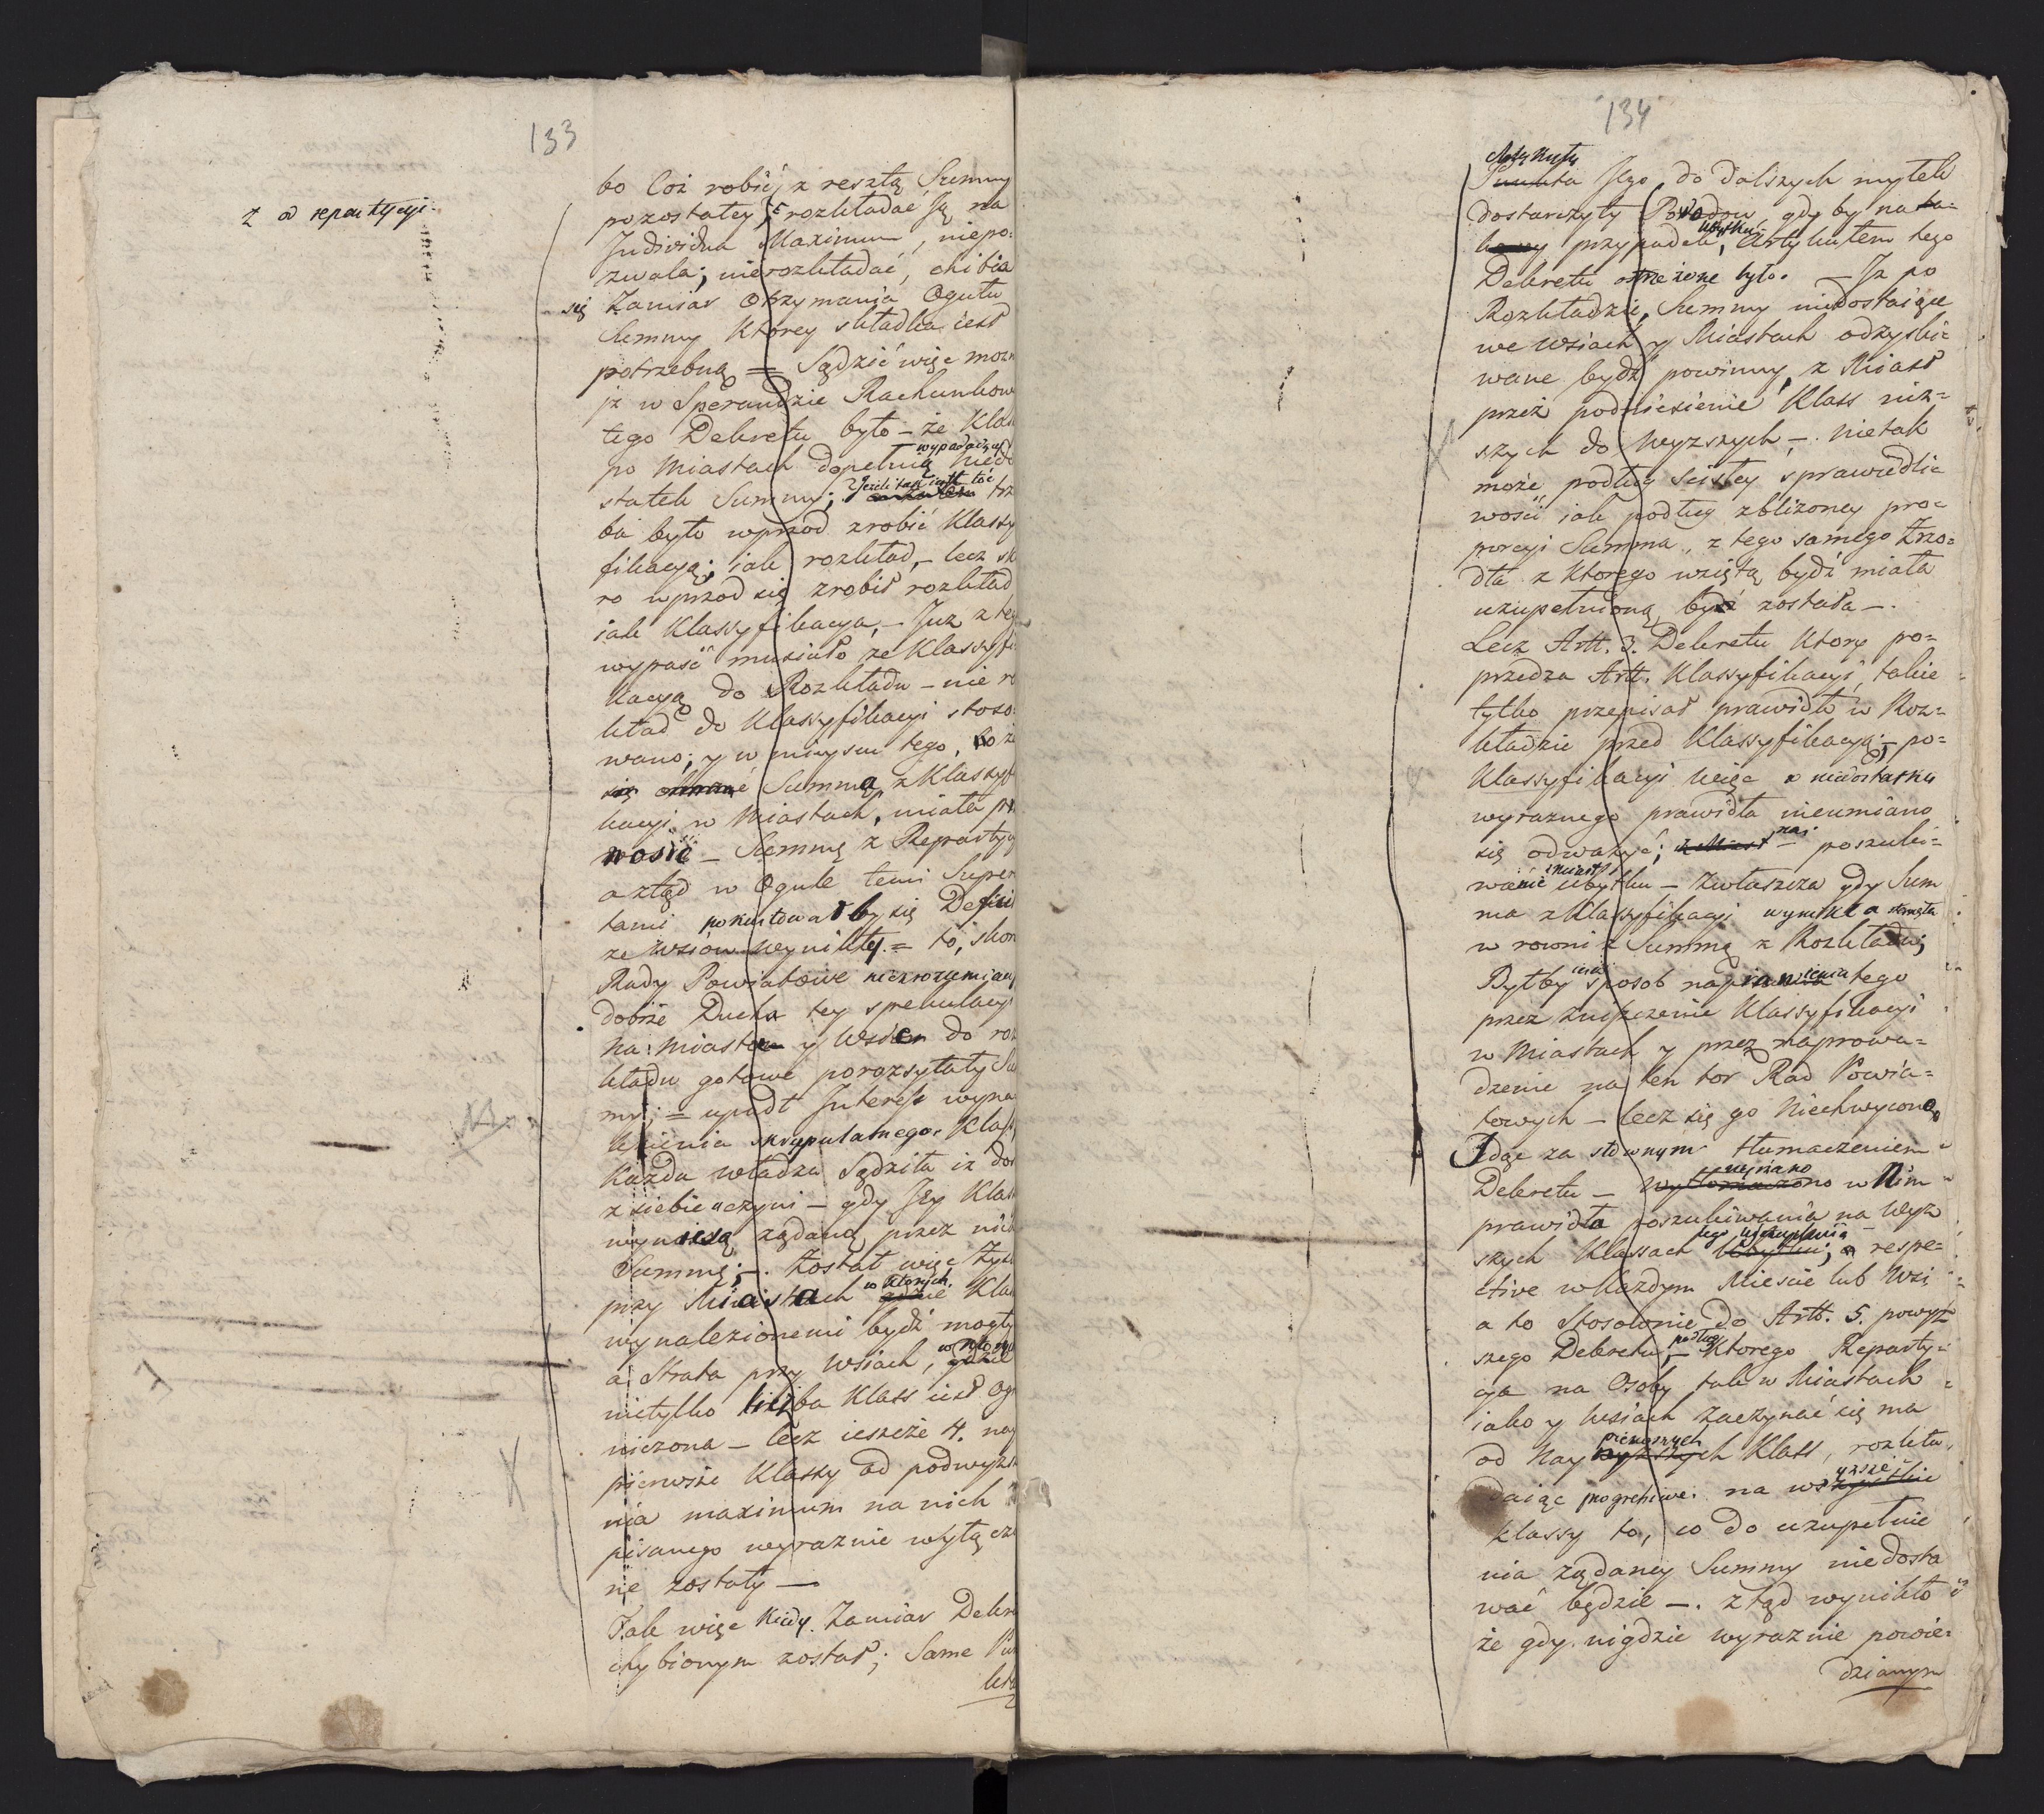 133
z od repartycyi.
bo Coż robić z resztą Summy
pozostałey? rozkładać Ją na
Individua Maximum, niepo:
zwala; nierozkładać, chibia
się Zamiar Otrzymania Ogułu
Summy Ktorey składka iest
potrzebną = Sądzić więc moz
iż w Sperandzie Rachunkow
tego Dekretu było – że Klas
wypadaiący
po Miastach dopełnią niedo
Jeżeli tak iest toć
statek Summy; trze
ba było wprzod zrobić Klassy
fikacyą; iak rozkład, – lecz sko
ro wprzod się zrobił rozkład
iak Klassyfikacya, – Juz z teg
wypaść musiało ze Klassyfi
kacyą do Rozkładu – nie ro
kład do Klassyfikacyi stoso:
wano; y w mieyscu tego, co
Summa z Klassyfi
kacyi w Miastach, miała prze
nosić – Summę z Repartycyi
a ztąd w Ogule temi Super
tami pokrytowałby się Defici
ze Wsiow wynikły. = to, skoro
Rady Powiatowe niezrozumiawszy
dobrze Ducha tey spekulacyi
na Miasta y Wsie do roz
kładu gotowe porozsyłały Su
my; = upadł Interess wyna
lezienia skrypulatnego Klass
Kazda władza Sądziła iz do
z siebie uczyni – gdy Jey Klass
wyniosą ządaną przez nie
Summę; –. Został więc Zysk
w ktorych
przy Miastach gdzie Klas
wynalezionemi bydź mogły
w ktorych
a Strata przy Wsiach, gdzie
nietylko liczba Klass iest Ogra
niczona – lecz ieszcze 4. nay
pierwsze Klassy od podwyzsze
nia maximum na nich
pisanego wyraznie wyłączo
ne zostały —
Tak więc Kiedy Zamiar Dekre
chybionym został; Same Pun
kta
134
Artykuły
Punkta Jego do dalszych mytek
dostarczyły Powodow, gdy by na ta:
ubytku
przypadek, Artykułem tego
Dekretu ostrzeżone było. – Iz po
Rozkładzie, Summy niedostaiące
we Wsiach y Miastach odzyski=
wane bydź powinny, z Miast
przez podniesienie Klass niz=
szych do Wyzszych –. nietak
może podług scisłey sprawiedli=
wości iak podług zblizoney pro=
porcyi Summa, z tego samego Zrzo=
dła z Ktorego wziętą bydź miała
uzupełnioną być została –.
Lecz Artt. 3. Dekretu Ktory po=
przedza Artt. Klassyfikacyi, takie
tylko przepisał prawidło w Roz=
kładzie przed Klassyfikacyą; – po=
Klassyfikacyi więc z niedostatku
wyraznego prawidła nieumiano
się odwazyć; z Miast na poszuki=
z miast
wanie ubytku – Zwłaszcza gdy Sum
ma z Klassyfikacyi wynikła stanęła
w rowni z Summą z Rozkładu;
ieszcze
Byłby sposob naprawienia tego
przez zniszczenie Klassyfikacyi
w Miastach y przez naprowa=
dzenie na ten tor Rad Powia=
towych – lecz się go Niechwycono.
Idąc za słownym tłumaczeniem
uyrzano
Dekretu – wytłomaczono w Nim
prawidła poszukiwania na Wyz
tego uzupełnienia
szych Klassach Ubytku; a respe=
ctive w kazdym Miescie lub Wsi
a to Stosownie do Artt. 5. powyz
podług
szego Dekretu; – Ktorego Reparty=
cya na Osoby tak w Miastach
iako y Wsiach Zaczynać się ma
pierwszych
od Nay wyzszych Klass, rozkła
yzsze
daiąc progressive na wszystkie
klassy to, co do uzupełnie
nia ządaney Summy niedosta
wać będzie –. ztąd wynikło
że gdy nigdzie wyraznie powie=
dzianym